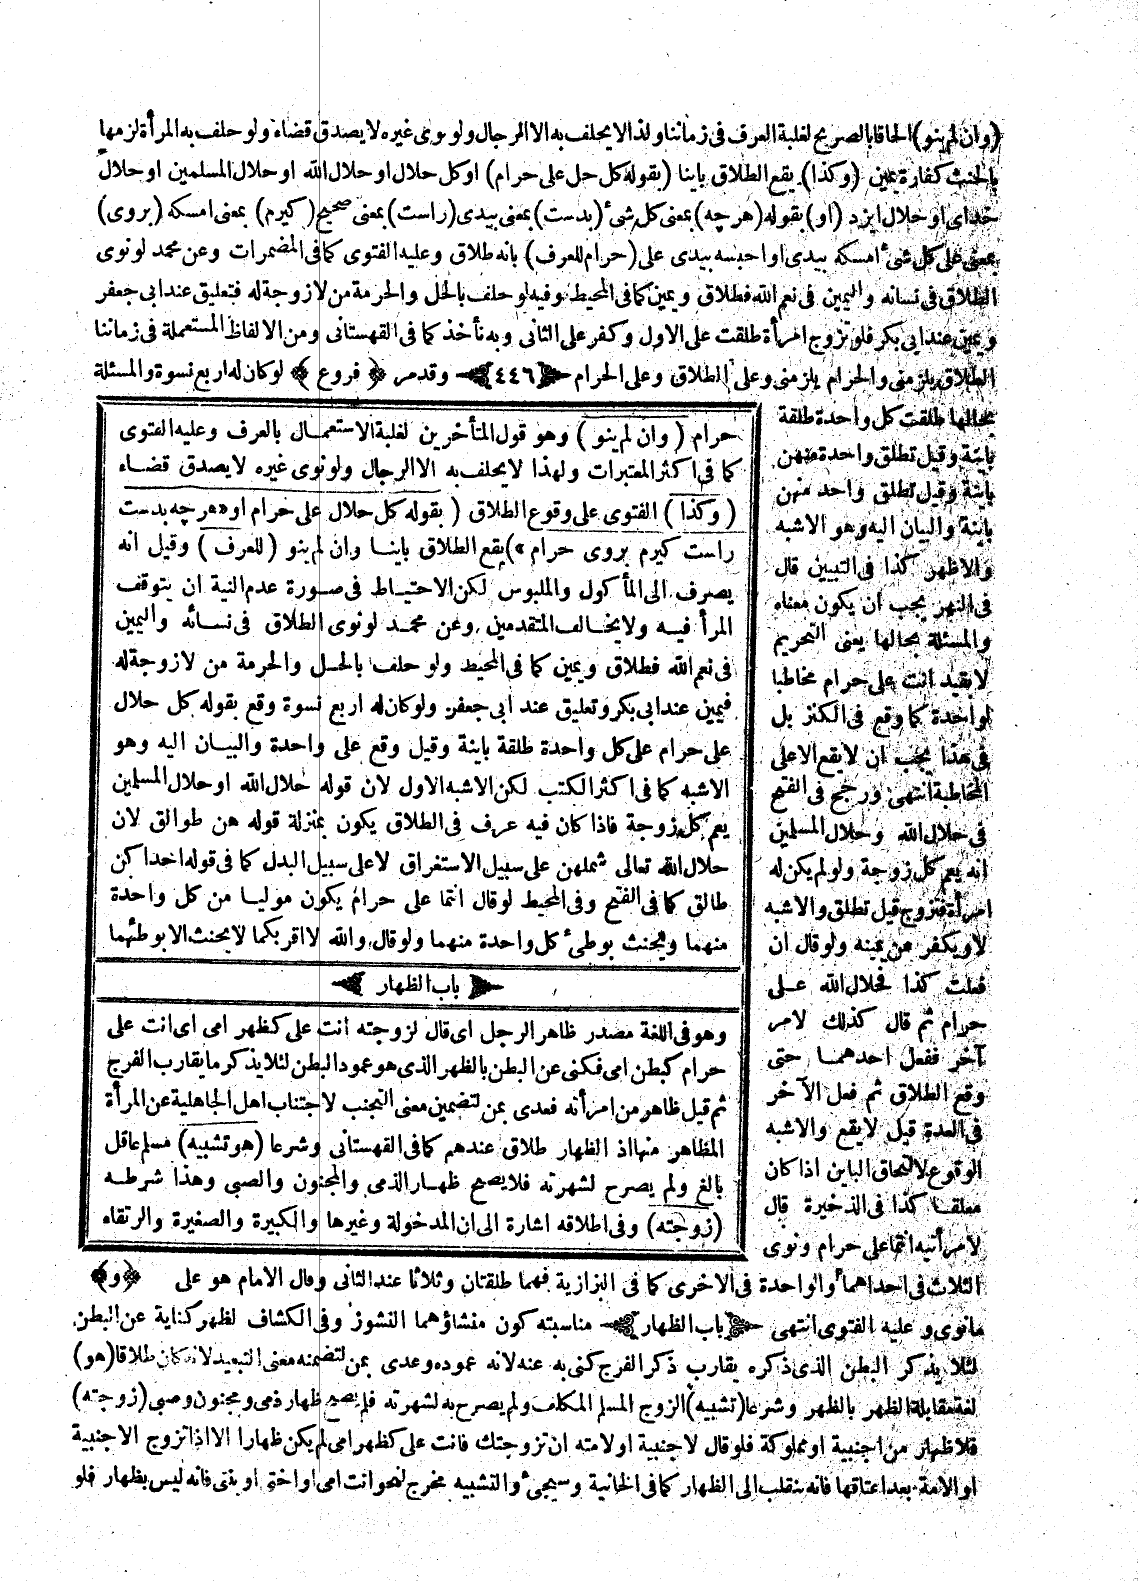 (وان لم ينو) الحاقا بالصريح لغلبة العرف فى زماننا ولذا لا يحلف به الا الرجال ولو نوى غيره لا يصدق قضاء ولو حلف به المرأة لزمها
بالحنث كفارة يمين (وكذا) يقع الطلاق باينا (بقوله كل حل على حرام) او كل حلال او حلال الله او حلال المسلمين او حلال
خداى او حلال ايزد (او) بقوله (هرچه) بمعنى كل شئ (بدست) بمعنى بيدى (راست) بمعنى صحيح (كيرم) بمعنى امسكه (بروى)
بمعنى على كل شئ امسكه بيدى او احبسه بيدى على (حرام للعرف) بانه طلاق وعليه الفتوى كما فى المضمرات وعن محمد لو نوى
الطلاق فى نسائه واليمين فى نعم الله فطلاق ويمين كما فى المحيط وفيه لو حلف بالحل والحرمة من لا زوجة له فتعليق عند ابى جعفر
ويمين عند ابى بكر فلو تزوج امرأة طلقت على الاول وكفر على الثانى وبه نأخذ كما فى القهستانى ومن الالفاظ المستعملة فى زماننا
الطلاق يلزمنى والحرام يلزمنى وعلى الطلاق وعلى الحرام ﴿٤٤٦﴾ وقد مر ﴿ فروع ﴾ لو كان له اربع نسوة والمسئلة
بحالها طلقت كل واحدة طلقة
باينة وقيل تطلق واحدة منهن
باينة وقيل تطلق واحد منهن
باينة والبيان اليه وهو الاشبه
والاظهر كذا فى التبيين قال
فى النهر يجب ان يكون معناه
والمسئلة بحالها يعنى التحريم
لا بقيد انت على حرام مخاطبا
لواحدة كما وقع فى الكنز بل
فى هذا يجب ان لا يقع الا على
المخاطبة انتهى ورجح فى الفتح
فى حلال الله وحلال المسلمين
انه يعم كل زوجة ولو لم يكن له
امرأة فتزوج قيل تطلق والاشبه
لا ويكفر عن يمينه ولو قال ان
فعلت كذا فحلال الله على
حرام ثم قال كذلك لامر
آخر ففعل احدهما حتى
وقع الطلاق ثم فعل الآخر
فى العدة قيل لا يقع والاشبه
الوقوع لالتحاق الباين اذا كان
معلقا كذا فى الذخيرة قال
لامرأتيه انتما على حرام ونوى
الثلاث فى احداهما والواحدة فى الاخرى كما فى البزازية فهما طلقتان وثلاثا عند الثانى وقال الامام هو على
مانوى وعليه الفتوى انتهى ﴿باب الظهار﴾ مناسبته كون منشاؤهما النشوز وفى الكشاف لظهر كناية عن البطن
لئلا يذكر البطن الذى ذكره يقارب ذكر الفرج كنى به عنه لانه عموده وعدى بمن لتضمنه معنى التبعيد لانه كان طلاقا (هو)
لغة مقابلة الظهر بالظهر وشرعا (تشبيه) الزوج المسلم المكلف ولم يصرح به لشهرته فلم يصح ظهار ذمى ومجنون وصبى (زوجته)
فلا ظهار من اجنبية او مملوكة فلو قال لاجنبية او لامته ان تزوجتك فانت على كظهر امى لم يكن ظهارا الا اذا تزوج الاجنبية
او الامة بعد اعتاقها فانه ينقلب الى الظهار كما فى الخانية وسيجئ والتشبيه مخرج لنحو انت امى او اختى او بنتى فانه ليس بظهار فلو
حرام (وان لم ينو) وهو قول المتأخرين لغلبة الاستعمال بالعرف وعليه الفتوى
كما فى اكثر المعتبرات ولهذا لا يحلف به الا الرجال ولو نوى غيره لا يصدق قضاء
(وكذا) الفتوى على وقوع الطلاق (بقوله كل حلال على حرام او «هرچه بدست
راست كيرم بروى حرام») يقع الطلاق باينا وان لم ينو (للعرف) وقيل انه
يصرف الى المأكول والملبوس لكن الاحتياط فى صورة عدم النية ان يتوقف
المرأ فيه ولا يخالف المتقدمين وعن محمد لو نوى الطلاق فى نسائه واليمين
فى نعم الله فطلاق ويمين كما فى المحيط ولو حلف بالحل والحرمة من لا زوجة له
فيمين عند ابى بكر وتعليق عند ابى جعفر ولو كان له اربع نسوة وقع بقوله كل حلال
على حرام على كل واحدة طلقة باينة وقيل وقع على واحدة والبيان اليه وهو
الاشبه كما فى اكثر الكتب لكن الاشبه الاول لان قوله حلال الله او حلال المسلمين
يعم كل زوجة فاذا كان فيه عرف فى الطلاق يكون بمنزلة قوله هن طوالق لان
حلال الله تعالى شملهن على سبيل الاستغراق لا على سبيل البدل كما فى قوله احداكن
طالق كما فى الفتح وفى المحيط لو قال انتما على حرام يكون موليا من كل واحدة
منهما ويحنث بوطئ كل واحدة منهما ولو قال والله لا اقربكما لا يحنث الا بوطئهما
﴿ باب الظهار ﴾
وهو فى اللغة مصدر ظاهر الرجل اى قال لزوجته انت على كظهر امى اى انت على
حرام كبطن امى فكنى عن البطن بالظهر الذى هو عمود البطن لئلا يذكر ما يقارب الفرج
ثم قيل ظاهر من امرأته فعدى بمن لتضمين معنى التجنب لاجتناب اهل الجاهلية عن المرأة
المظاهر منها اذ الظهار طلاق عندهم كما فى القهستانى وشرعا (هو تشبيه) مسلم عاقل
بالغ ولم يصرح لشهرته فلا يصح ظهار الذمى والمجنون والصبى وهذا شرطه
(زوجته) وفى اطلاقه اشارة الى ان المدخولة وغيرها والكبيرة والصغيرة والرتقاء
﴿ و ﴾